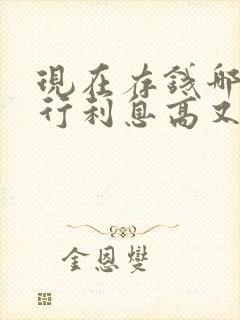 現在存錢哪
行利息高又
金恩燮